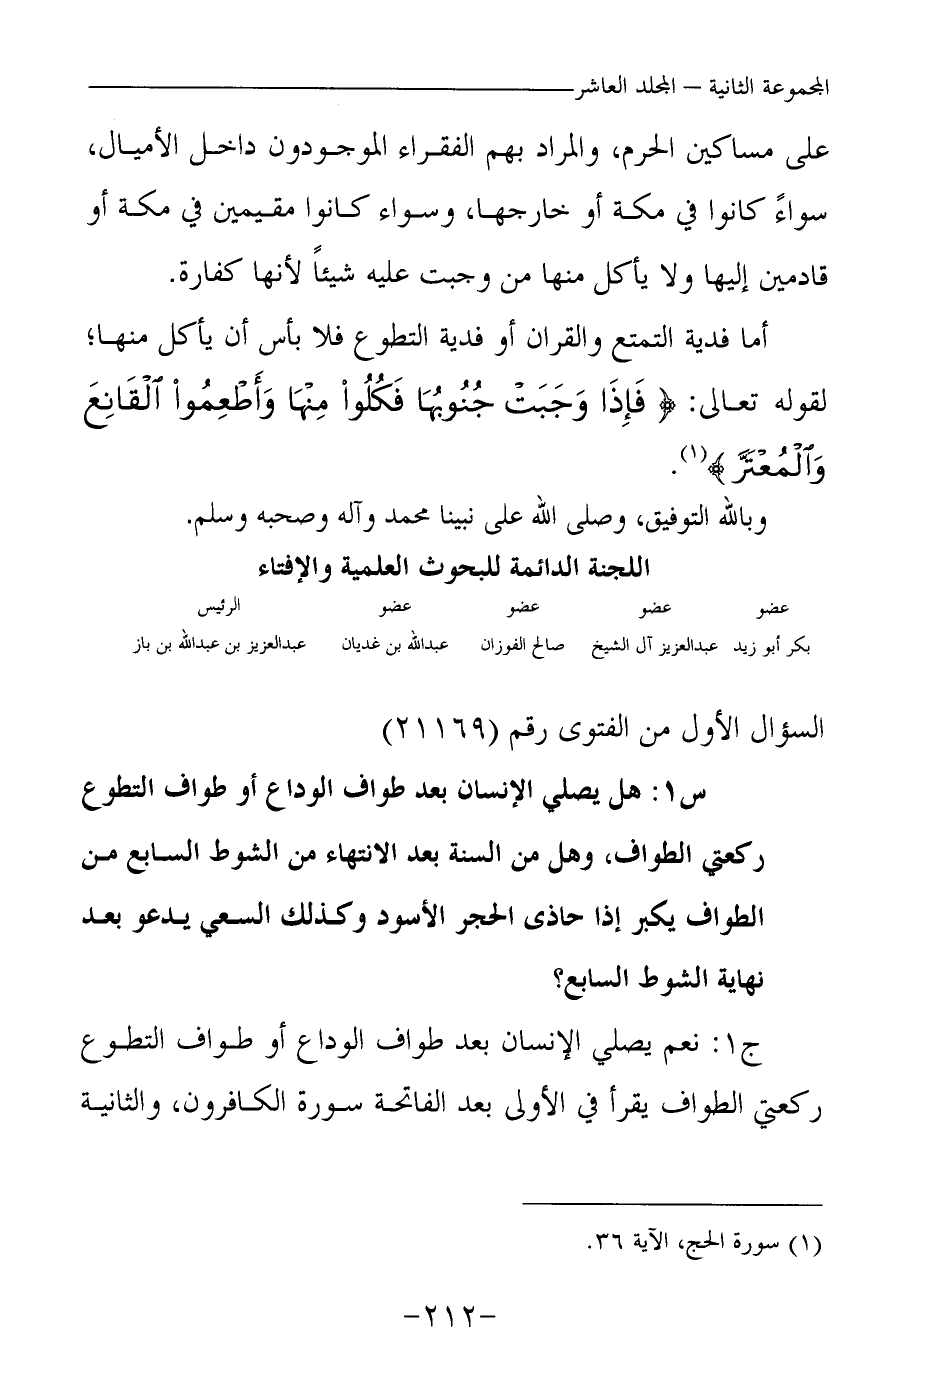 المجموعة الثانية – المجلد العاشر
على مساكين الحرم، والمراد بهم الفقراء الموجودون داخل الأميال،
سواءً كانوا في مكة أو خارجها، وسواء كانوا مقيمين في مكة أو
قادمين إليها ولا يأكل منها من وجبت عليه شيئاً لأنها كفارة.
أما فدية التمتع والقران أو فدية التطوع فلا بأس أن يأكل منها؛
لقوله تعالى: ﴿ فَإِذَا وَجَبَتْ جُنُوبُهَا فَكُلُوا۟ مِنْهَا وَأَطْعِمُوا۟ ٱلْقَانِعَ
وَٱلْمُعْتَرَّ ﴾(١).
وبالله التوفيق، وصلى الله على نبينا محمد وآله وصحبه وسلم.
اللجنة الدائمة للبحوث العلمية والإفتاء
عضو عضو عضو عضو الرئيس
بكر أبو زيد عبدالعزيز آل الشيخ صالح الفوزان عبدالله بن غديان عبدالعزيز بن عبدالله بن باز
السؤال الأول من الفتوى رقم (٢١١٦٩)
س١: هل يصلي الإنسان بعد طواف الوداع أو طواف التطوع
ركعتي الطواف، وهل من السنة بعد الانتهاء من الشوط السابع من
الطواف يكبر إذا حاذى الحجر الأسود وكذلك السعي يدعو بعد
نهاية الشوط السابع؟
ج١: نعم يصلي الإنسان بعد طواف الوداع أو طواف التطوع
ركعتي الطواف يقرأ في الأولى بعد الفاتحة سورة الكافرون، والثانية
(١) سورة الحج، الآية ٣٦.
-٢١٢-